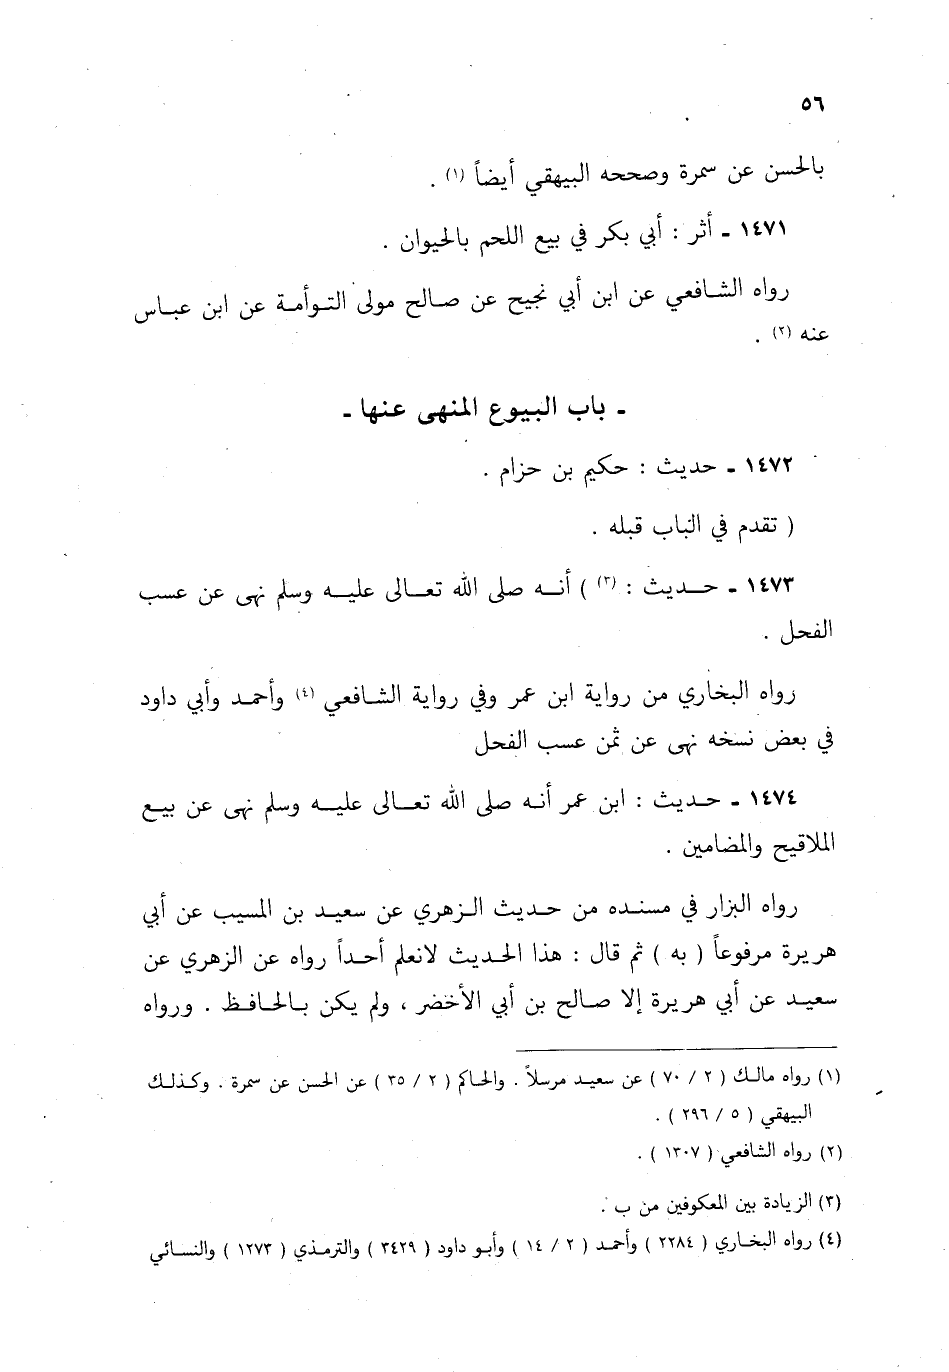 ٥٦
بالحسن عن سمرة وصححه البيهقي أيضاً (١) .
١٤٧١ ـ أثر : أبي بكر في بيع اللحم بالحيوان .
رواه الشافعي عن ابن أبي نجيح عن صالح مولى التوأمة عن ابن عباس
عنه (٢) .
ـ باب البيوع المنهى عنها ـ
١٤٧٢ ـ حديث : حكيم بن حزام .
( تقدم في الباب قبله .
١٤٧٣ ـ حديث : (٣) ) أنه صلى الله تعالى عليه وسلم نهى عن عسب
الفحل .
رواه البخاري من رواية ابن عمر وفي رواية الشافعي (٤) وأحمد وأبي داود
في بعض نسخه نهى عن ثمن عسب الفحل
١٤٧٤ ـ حديث : ابن عمر أنه صلى الله تعالى عليه وسلم نهى عن بيع
الملاقيح والمضامين .
رواه البزار في مسنده من حديث الزهري عن سعيد بن المسيب عن أبي
هريرة مرفوعاً ( به ) ثم قال : هذا الحديث لانعلم أحداً رواه عن الزهري عن
سعيد عن أبي هريرة إلا صالح بن أبي الأخضر ، ولم يكن بالحافظ . ورواه
(١) رواه مالك ( ٢ / ٧٠ ) عن سعيد مرسلاً . والحاكم ( ٢ / ٣٥ ) عن الحسن عن سمرة . وكذلك
البيهقي ( ٥ / ٢٩٦ ) .
(٢) رواه الشافعي ( ١٣٠٧ ) .
(٣) الزيادة بين المعكوفين من ب .
(٤) رواه البخاري ( ٢٢٨٤ ) وأحمد ( ٢ / ١٤ ) وأبو داود ( ٣٤٢٩ ) والترمذي ( ١٢٧٣ ) والنسائي